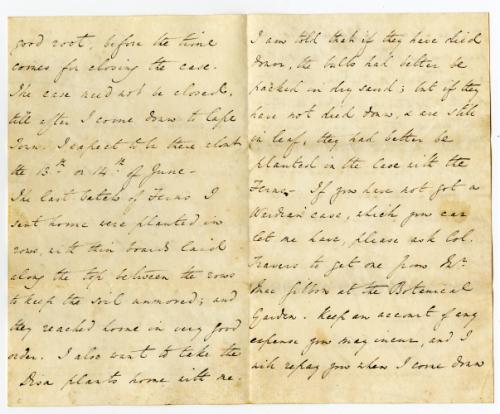 good root, before the time
comes for closing the case.
The case need not be closed,
till after I come down to Cape
Town. I expect to be there about
the 13th or 14th of June -
The last batch of Ferns I
sent home were planted in
rows, with thin boards laid
along the top, between the rows
to keep the soil unmoved; and
they reached home in very good
order. I also want to take the
Disa plants home with me.
I am told that if they have died
down, the bulbs had better be
packed in dry sand; but if they
have not died down, & are still
in leaf, they had better be
planted in the case with the
Ferns. If you have not got a
Wardian case, which you can
let me have, please ask Col.
Travers to get one from Mr.
Mac Gibbon at the Botanical
Garden. Keep an account of any
expense you may incur, and I
will repay you when I come down